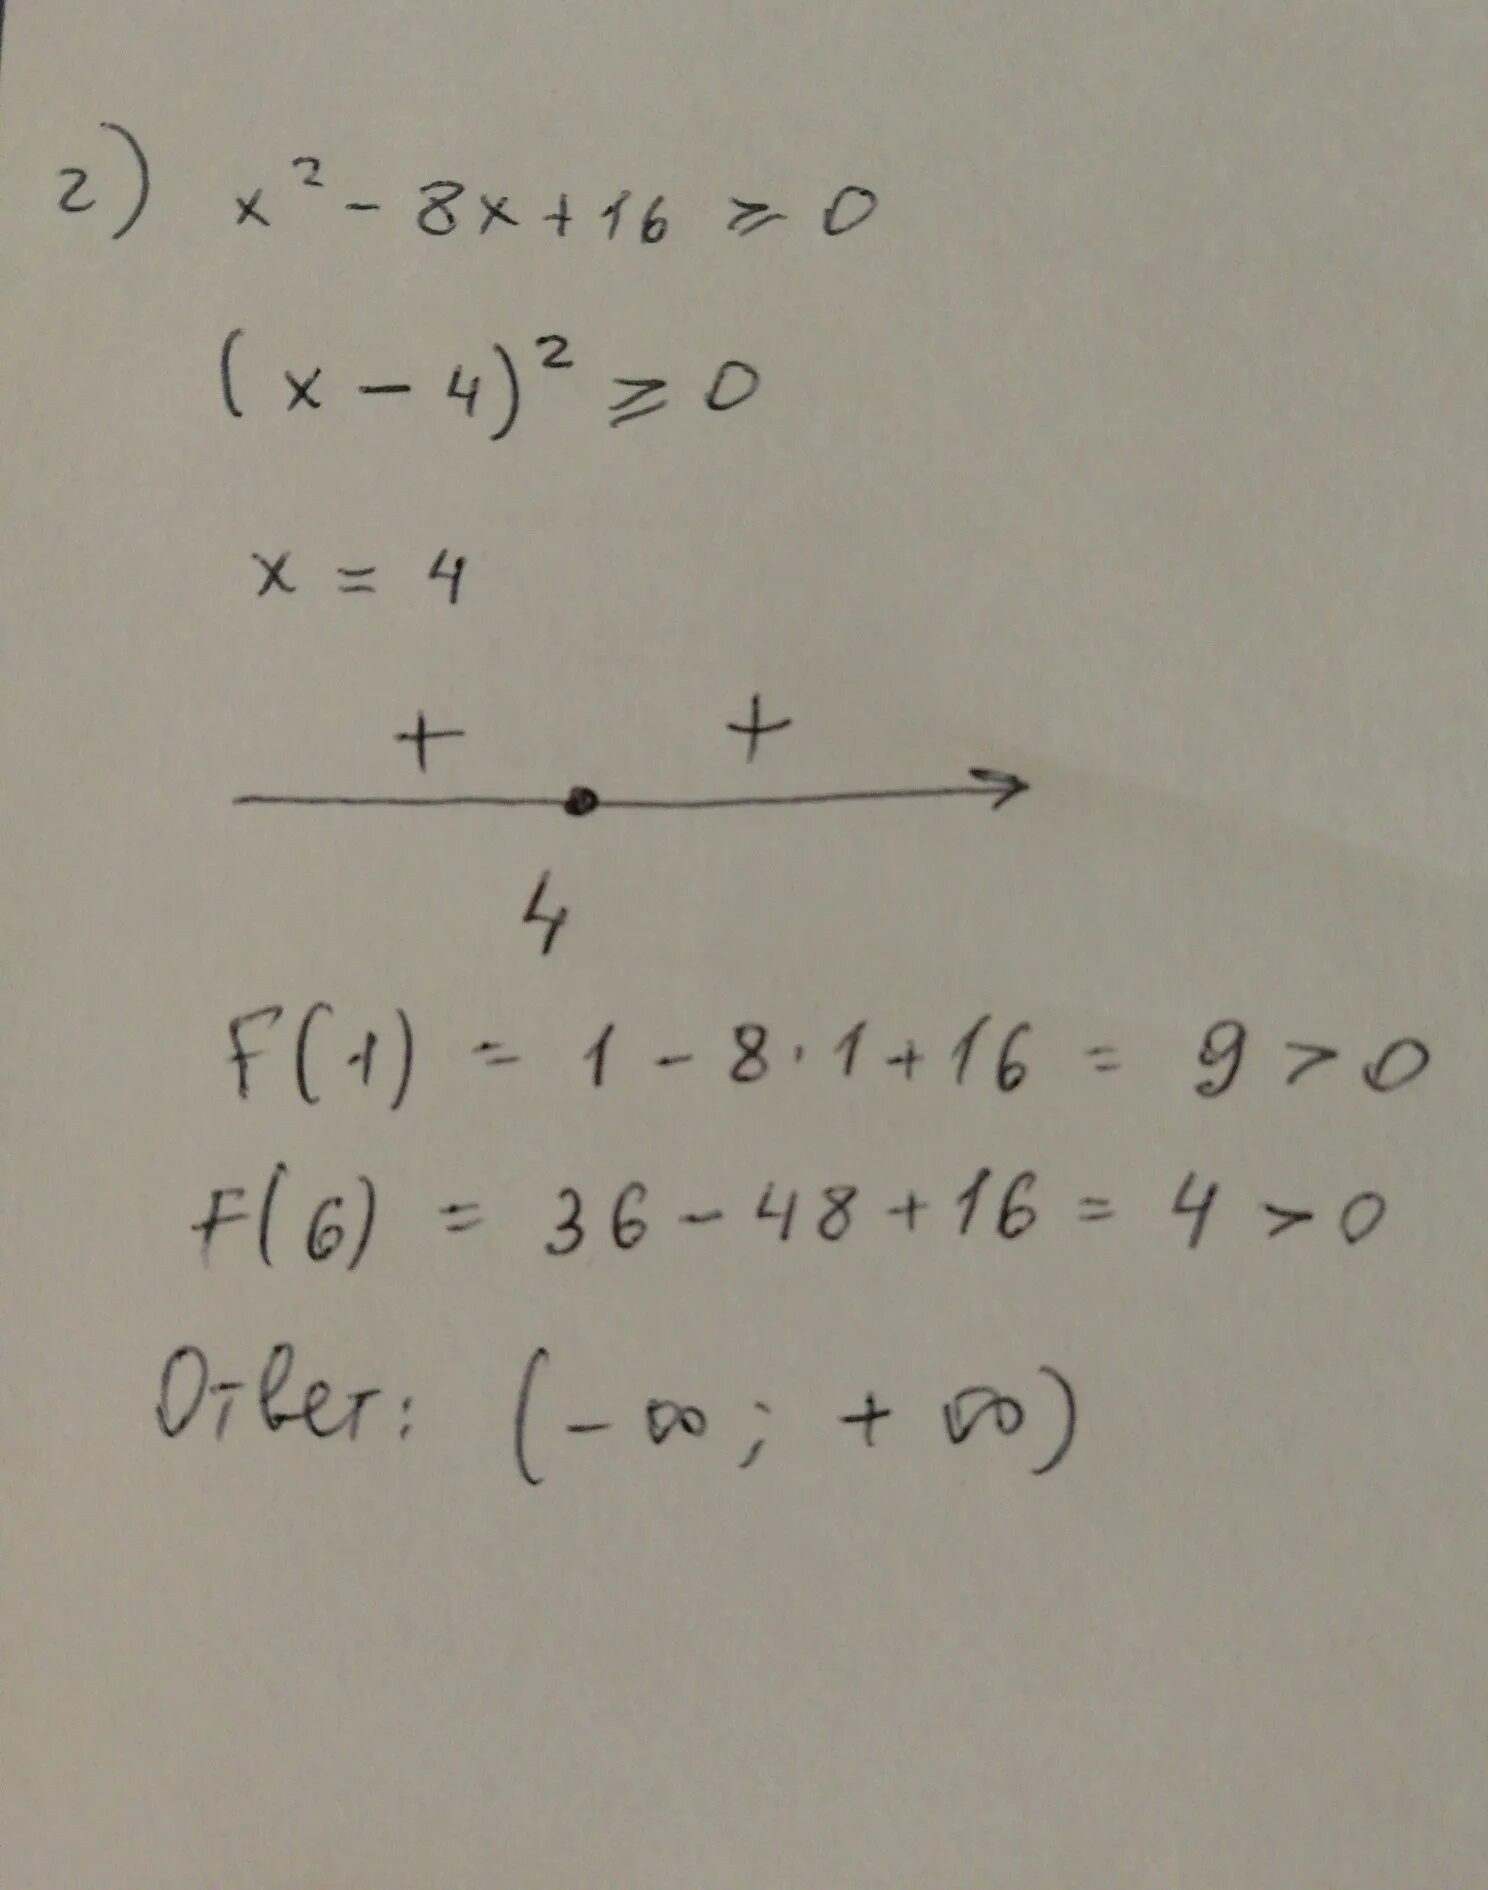 2) x² - 8x + 16 ⩾ 0
(x - 4)² ⩾ 0
x = 4
+ +
4
F(1) = 1 - 8 · 1 + 16 = 9 > 0
F(6) = 36 - 48 + 16 = 4 > 0
Ответ: (- ∞ ; + ∞)